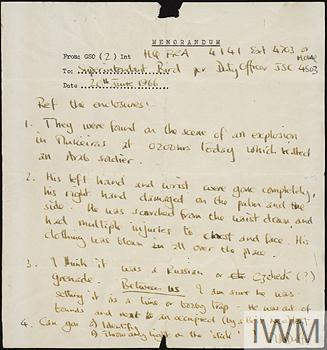 MEMORANDUM
From: GSO (2) Int HQ FRA 4141 Ext 4703 or Home
To: Superintendent Bird per Duty Officer JSC 4603
Date 24th June 1966
Ref the enclosures:-
1. They were found on the scene of an explosion
in Mukeiras at 0200hrs today which killed
an Arab soldier.
2. His left hand and wrist were gone completely,
his right hand damaged on the palm and the
side. He was scorched from the waist down and
had multiple injuries to chest and face. His
clothing was blown all over the place.
3. I think it was a Russian or Czcheck (?)
grenade. Between us I am sure he was
setting it as a mine or booby trap. He was out of
bounds and next to an occupied
4. Can you a) Identify
b) Throw any light on the 'stick'
IWM